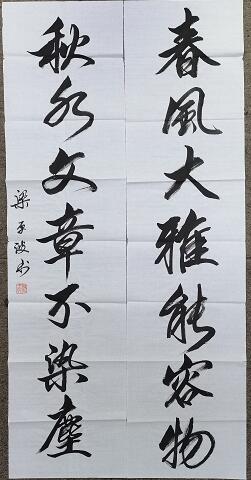 春風大雅能容物
秋水文章不染塵
梁平波书